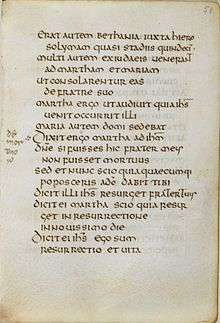 51
erat autem bethania iuxta hiero
solymam quasi stadiis quindeci
multi autem ex iudaeis uenerant
ad martham et mariam
ut consolarentur eas
de fratre suo
martha ergo ut audiuit quia ihs
uenit occurrit illi
maria autem domi sedebat
Dixit ergo martha ad ihm
dne si fuisses hic frater meus
non fuisset mortuus
sed et nunc scio quia quaecumque
poposceris a do dabit tibi
dicit illi ihs resurget frater tuus
dicit ei martha scio quia resur
get in resurrectione
in nouissimo die
Dicit ei ihs ego sum
resurrectio et uita